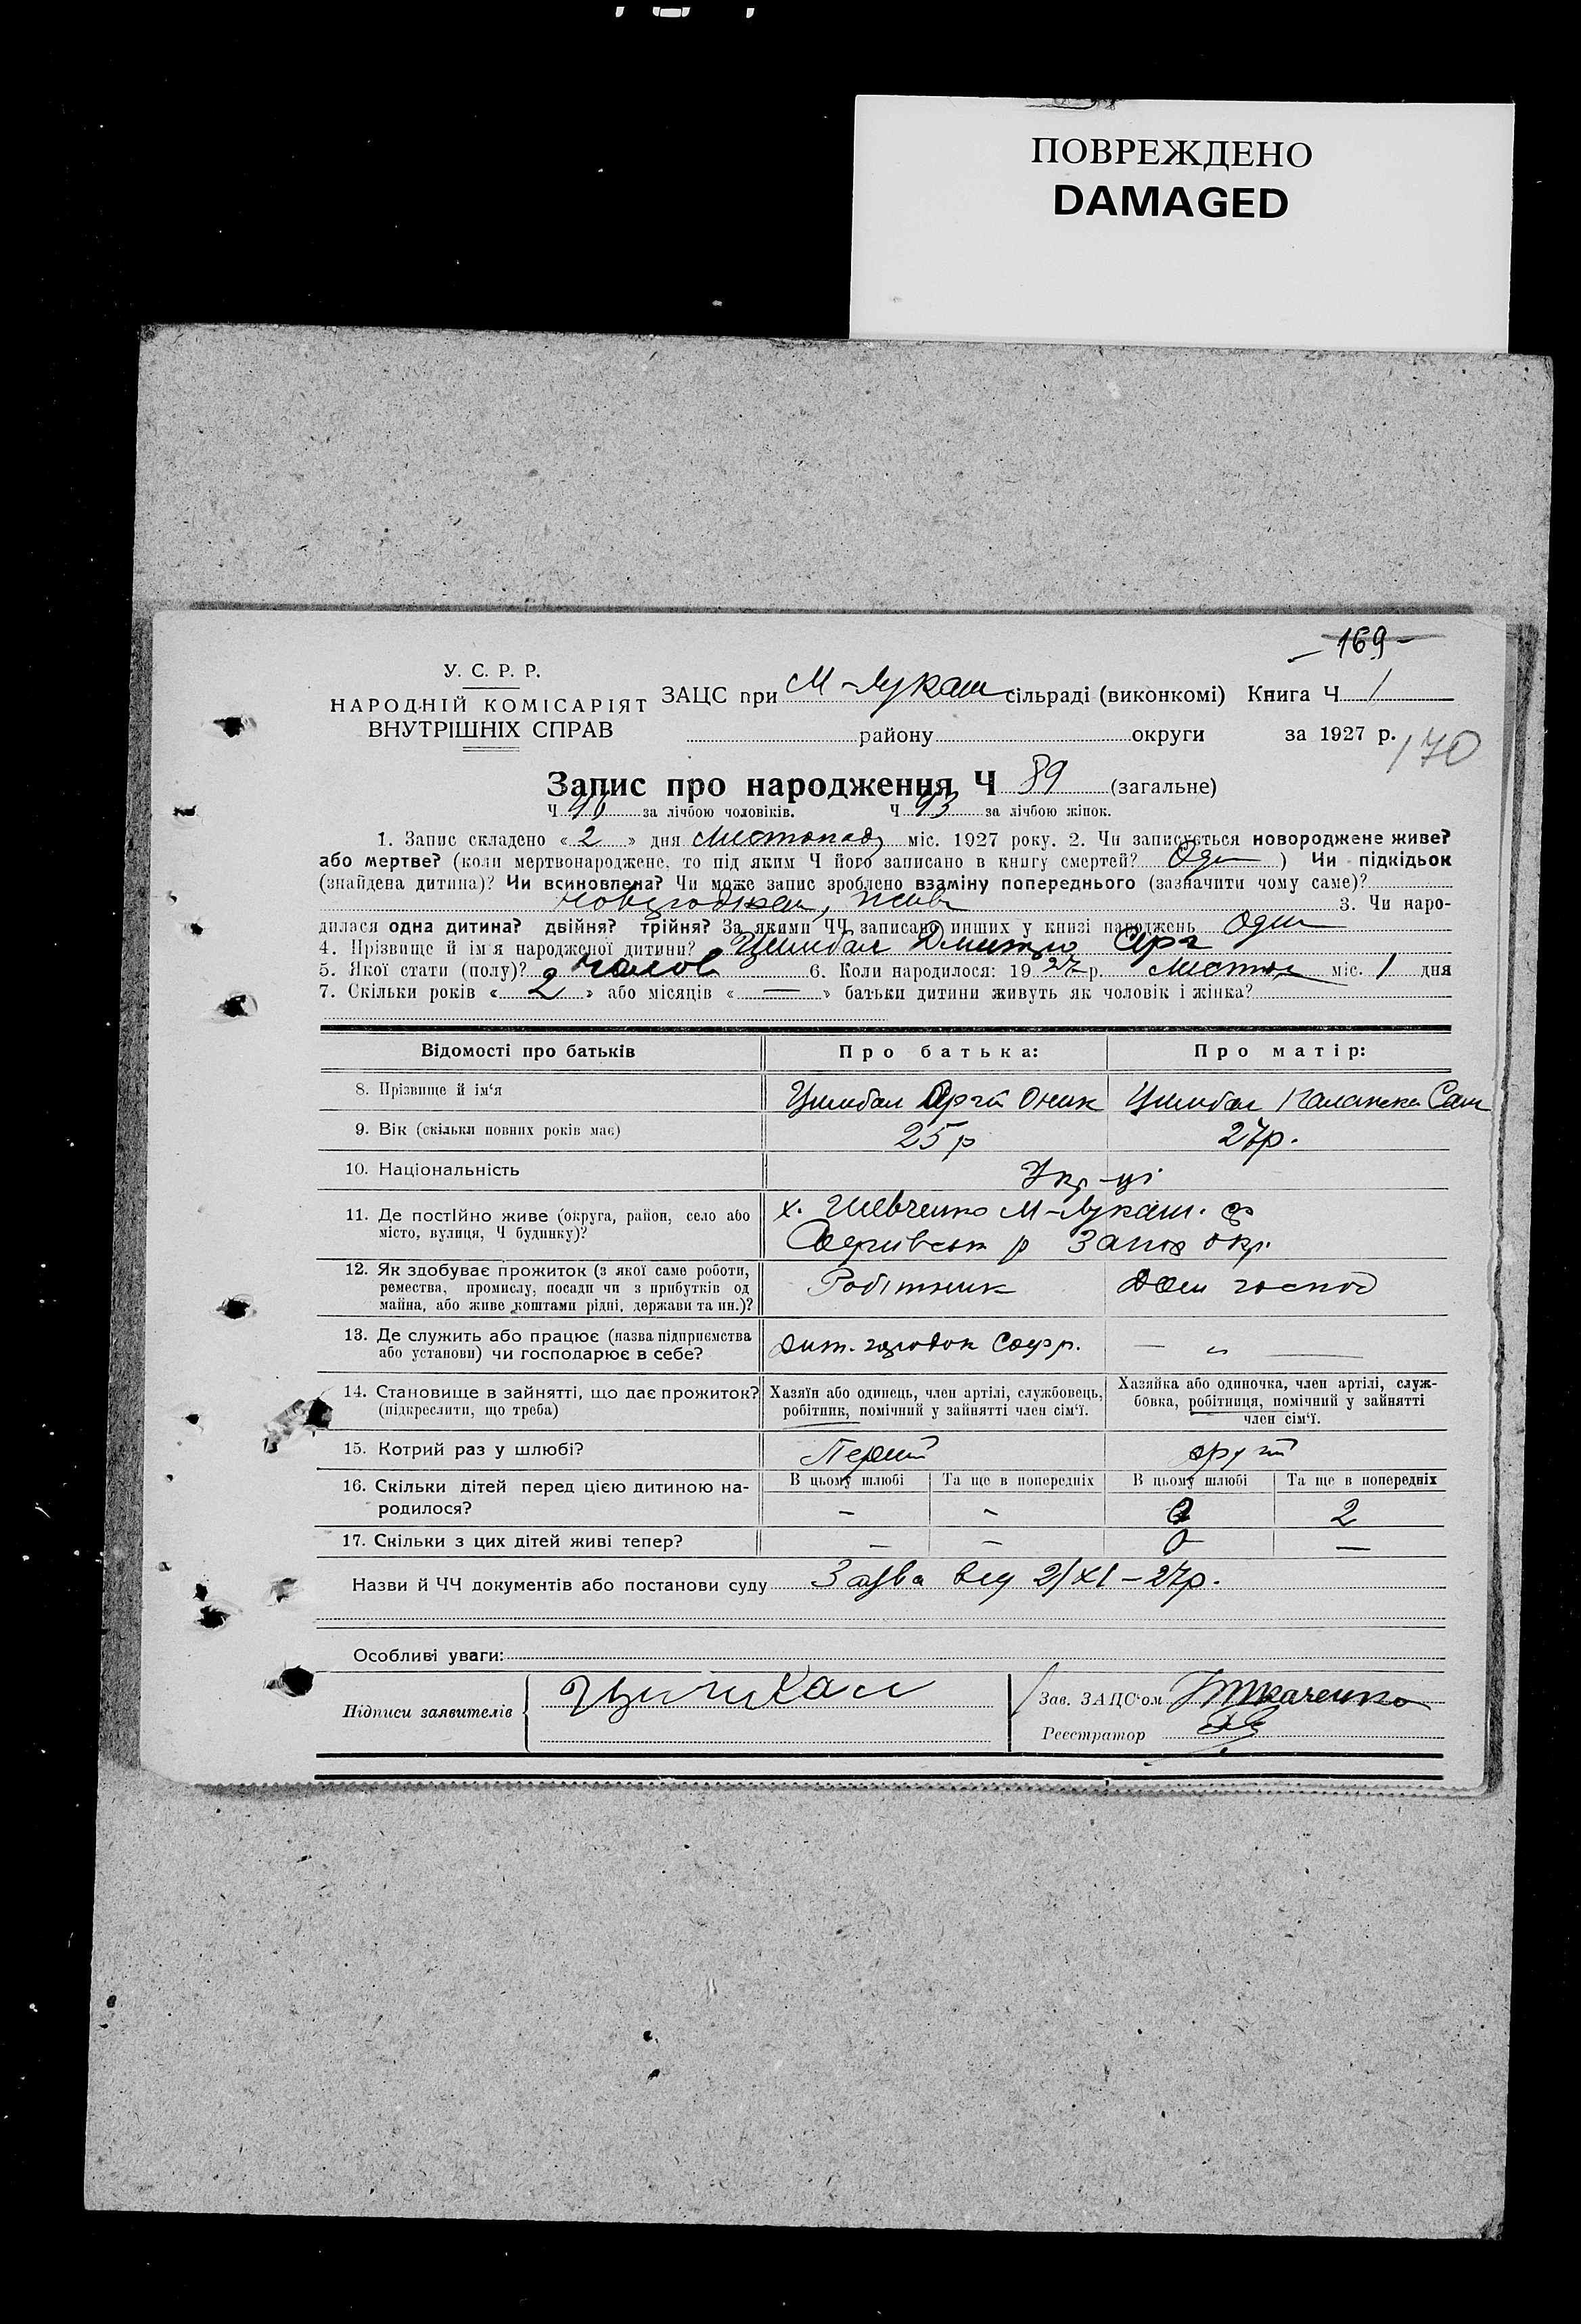 ПОВРЕЖДЕНО
DAMAGED
– 169 –
У. С. Р. Р.
НАРОДНІЙ КОМІСАРІЯТ
ВНУТРІШНІХ СПРАВ
ЗАЦС при М-Лукаш сільраді (виконкомі) Книга Ч 1
району округи за 1927 р.
170
Запис про народження Ч 89 (загальне)
Ч 46 за лічбою чоловіків. Ч 43 за лічбою жінок.
1. Запис складено « 2 » дня Листопад міс. 1927 року. 2. Чи записується новороджене живе?
або мертве? (коли мертвонароджене, то під яким Ч його записано в книгу смертей? ) Чи підкідьок
(знайдена дитина)? Чи всиновлена? Чи може запис зроблено взаміну попереднього (зазначити чому саме)?
3. Чи наро-
дилася одна дитина? двійня? трійня? За якими ЧЧ записано инших у книзі народжень Один
4. Прізвище й ім'я народженої дитини? Цимбал Дмитро Серг
5. Якої стати (полу)? чолов 6. Коли народилося: 19 27 р. Листоп міс. 1 дня
7. Скільки років « 2 » або місяців « — » батьки дитини живуть як чоловік і жінка?
Відомості про батьків Про батька: Про матір:
8. Прізвище й ім'я Цимбал Сергій Оник Цимбал
9. Вік (скільки повних років має) 25 р 27р.
10. Національність Укр-ці
11. Де постійно живе (округа, район, село або
місто, вулиця, Ч будинку)?
х. Шевченко М-Лукаш.
Софіївськ р Запоз окр.
12. Як здобуває прожиток (з якої саме роботи,
ремества, промислу, посади чи з прибутків од
майна, або живе коштами рідні, держави та ин.)?
Робітник Дом господ
13. Де служить або працює (назва підприємства
або установи) чи господарює в себе?
Дит. городок Соф р. — „ —
14. Становище в зайнятті, що дає прожиток?
(підкреслити, що треба)
Хазяїн або одинець, член артілі, службовець,
робітник, помічний у зайнятті член сім'ї.
Хазяйка або одиночка, член артілі, служ-
бовка, робітниця, помічний у зайнятті
член сім'ї.
15. Котрий раз у шлюбі? Перший другий
16. Скільки дітей перед цією дитиною на-
родилося?
В цьому шлюбі Та ще в попередніх В цьому шлюбі Та ще в попередніх
– – 2
17. Скільки з цих дітей живі тепер? — — —
Назви й ЧЧ документів або постанови суду Заява від 2/XI – 27р.
Особливі уваги:
Підписи заявителів Цимбал
Зав. ЗАЦС'ом Ткаченко
Реєстратор